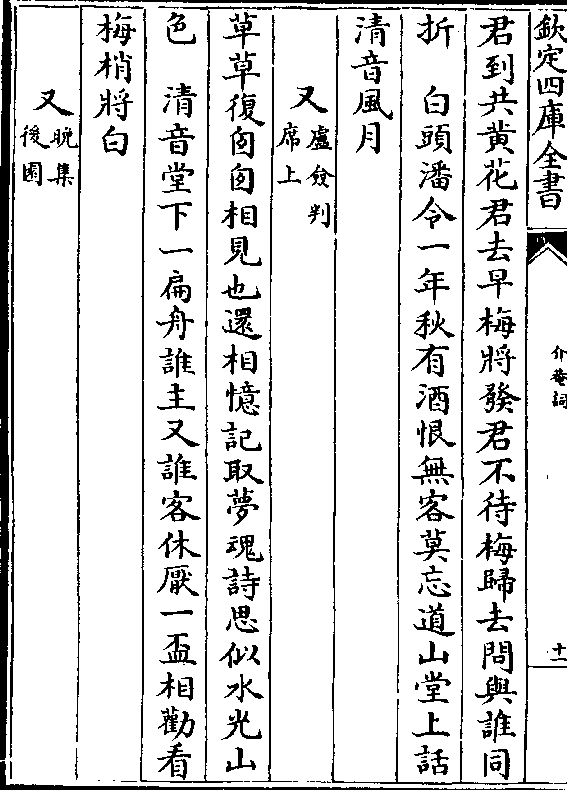 欽定四庫全書
介菴詞
十一
君到共黄花君去早梅將發君不待梅歸去問與誰同
折　白頭潘令一年秋有酒恨無客莫忘道山堂上話
清音風月
又盧僉判席上
草草復匆匆相見也還相憶記取夢魂詩思似水光山
色　清音堂下一扁舟誰主又誰客休厭一盃相勸看
梅梢將白
又晩集後園